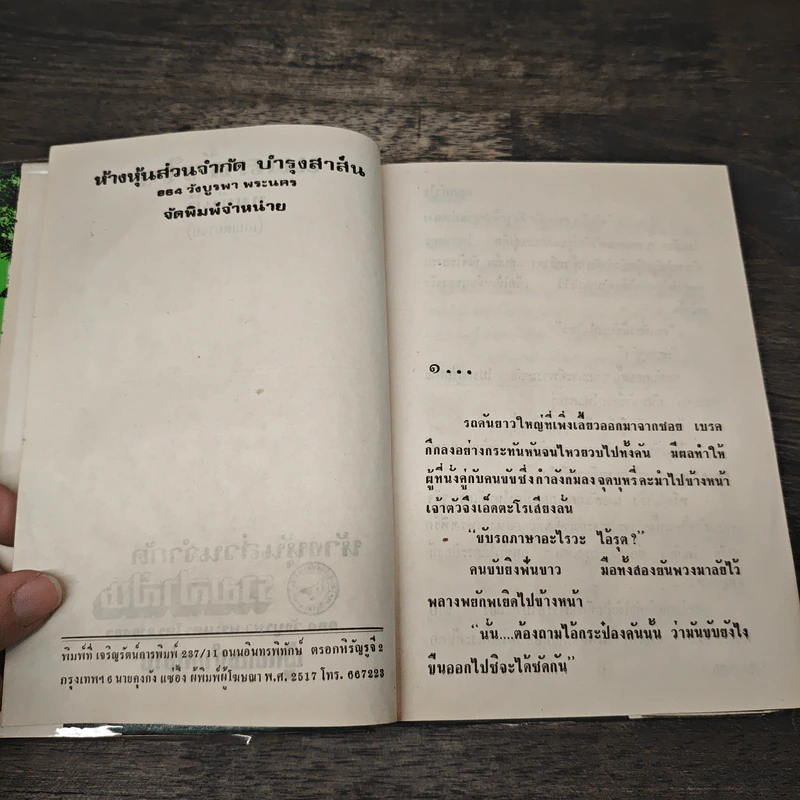 ห้างหุ้นส่วนจำกัด บำรุงสาส์น
๑๑๔ วังบูรพา พระนคร
จัดพิมพ์จำหน่าย
พิมพ์ที่ เจริญรัตน์การพิมพ์ 237/11 ถนนอินทรพิทักษ์ ตรอกหิรัญรูจี 2
กรุงเทพฯ 6 นายคุงกัง แซ่อึ้ง ผู้พิมพ์ผู้โฆษณา พ.ศ. 2517 โทร. 667223
๑...
รถคันยาวใหญ่ที่เพิ่งเลี้ยวออกมาจากซอย เบรค
กึกลงอย่างกระทันหันจนไหวยวบไปทั้งคัน มีผลทำให้
ผู้ที่นั่งคู่กับคนขับซึ่งกำลังก้มลงจุดบุหรี่คะมำไปข้างหน้า
เจ้าตัวจึงเอ็ดตะโรเสียงลั่น
“ขับรถภาษาอะไรวะ ไอ้รุต?”
คนขับยิงฟันขาว มือทั้งสองยันพวงมาลัยไว้
พลางพยักพเยิดไปข้างหน้า
“นั่น....ต้องถามไอ้กระป๋องคันนั้น ว่ามันขับยังไง
ขืนออกไปซิจะได้ซัดกัน”